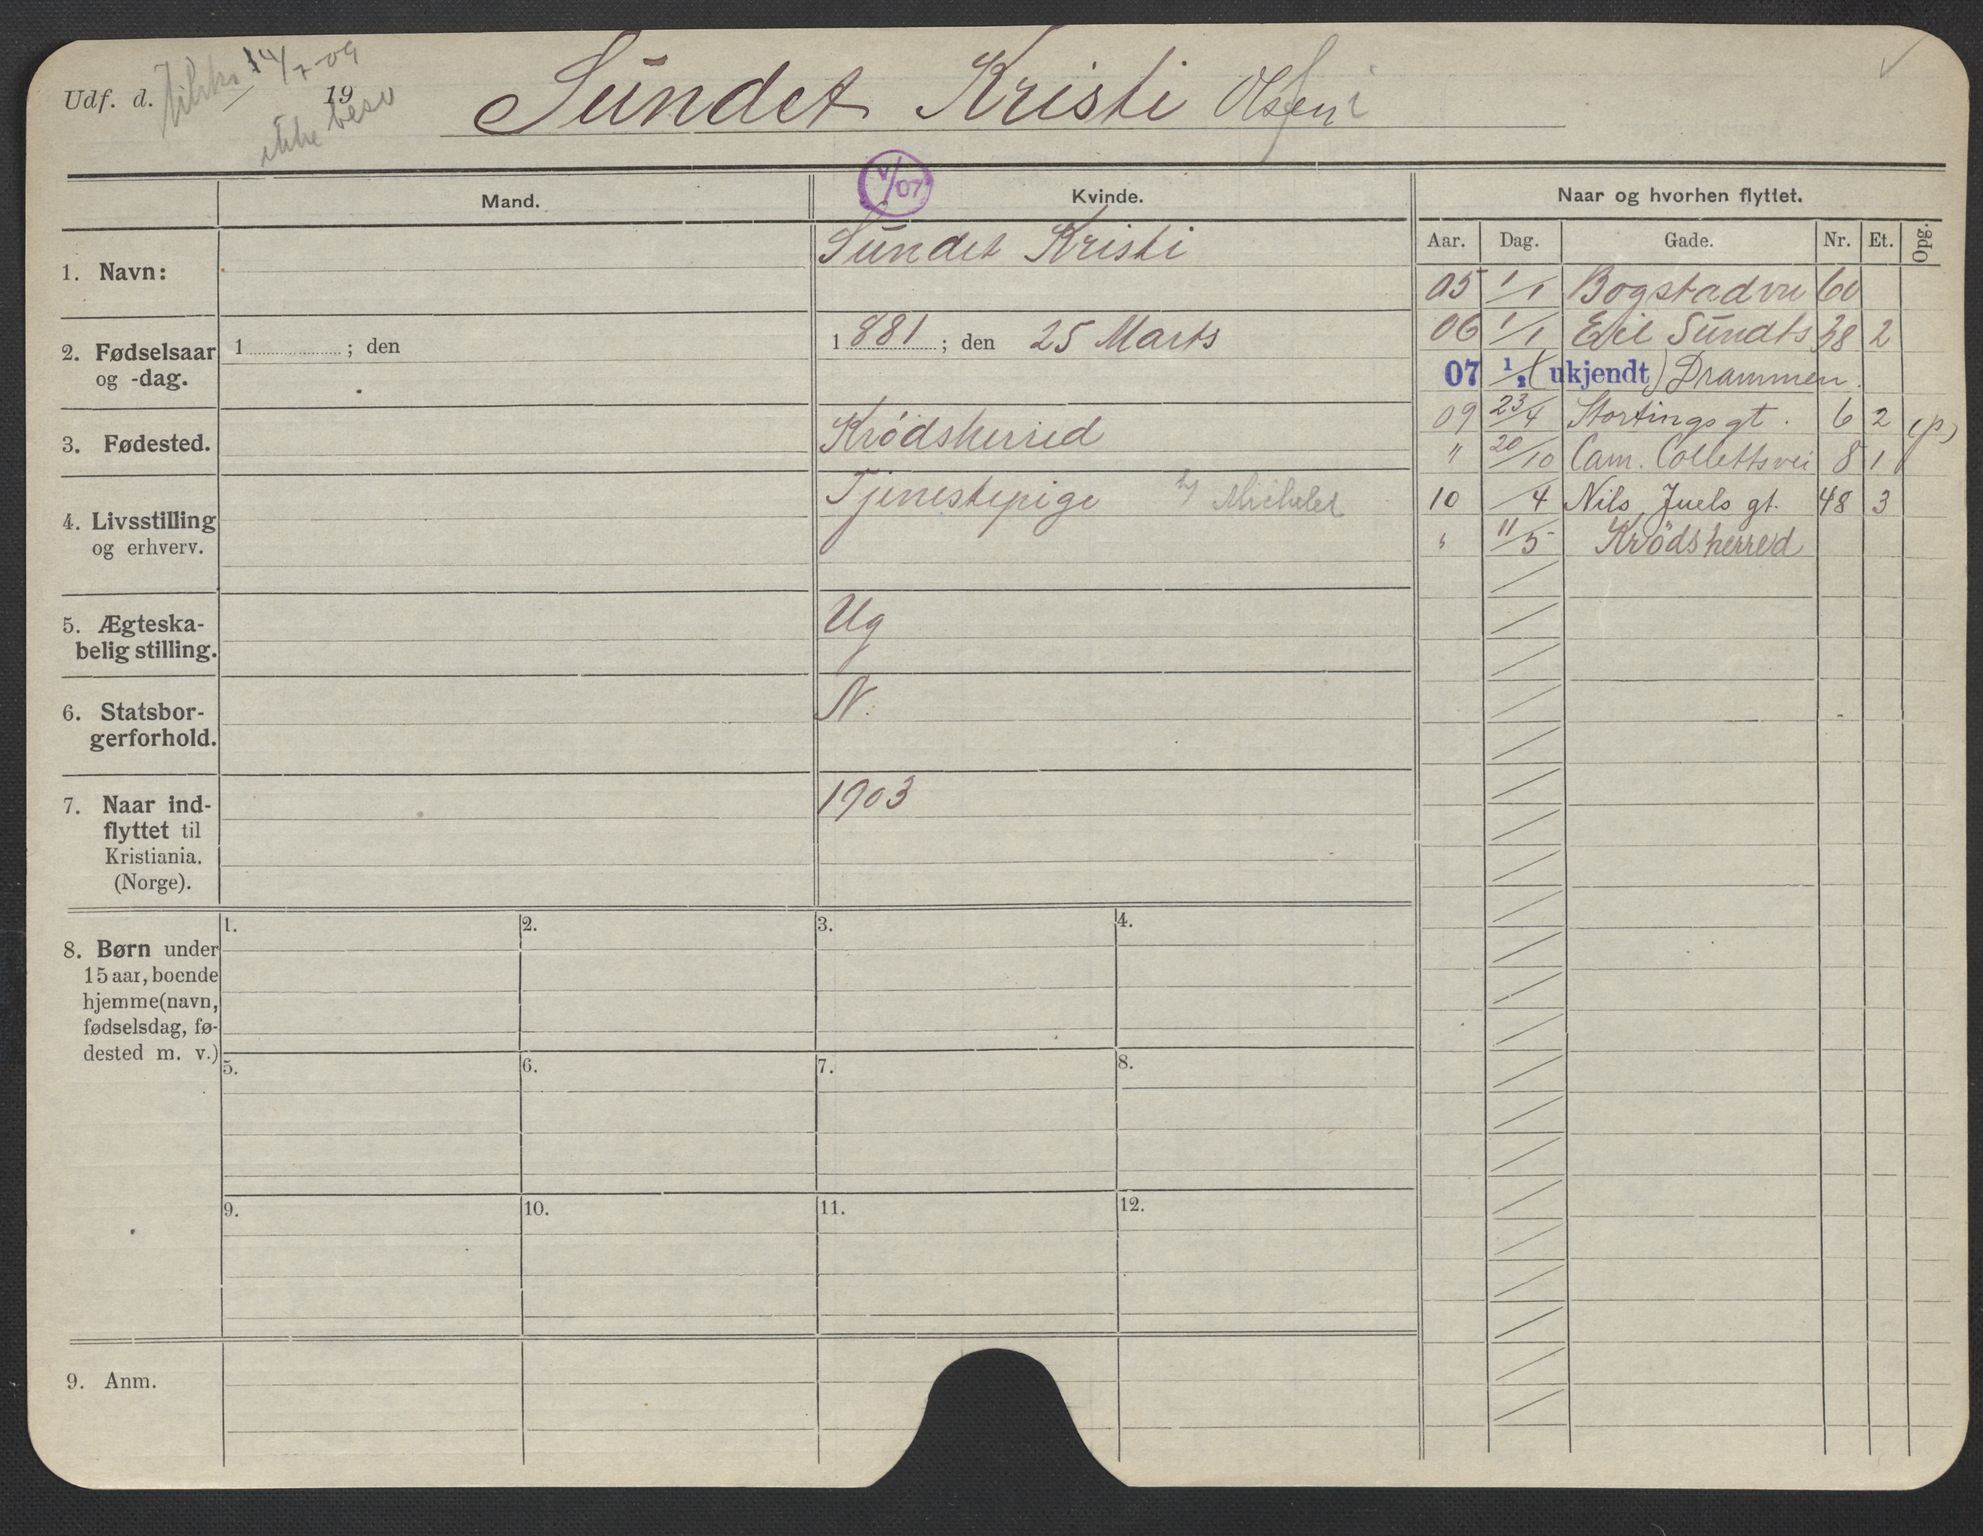 Udf. d. 14/7-09 19
ikke besv
Sundet Kristi Olsen
V/07
Mand.
Kvinde.
Naar og hvorhen flyttet.
Aar. Dag. Gade. Nr. Et. Opg.
1. Navn:
Sundet Kristi
2. Fødselsaar
og -dag.
1 ; den
1881 ; den 25 Marts
3. Fødested.
Krødsherred
4. Livsstilling
og erhverv.
Tjenestepige h/ Michelet
5. Ægteska-
belig stilling.
Ug
6. Statsbor-
gerforhold.
N.
7. Naar ind-
flyttet til
Kristiania.
(Norge).
1903
05 1/1 Bogstadvei 60
06 1/1 Eil Sundts 38 2
07 1/2 (ukjendt) Drammen.
09 23/4 Stortingsgt. 6 2 (p)
" 20/10 Cam. Collettsvei 8 1
10 /4 Nils Juels gt. 48 3
" 11/5 Krødsherred
8. Børn under
15 aar, boende
hjemme (navn,
fødselsdag, fø-
dested m. v.)
1. 2. 3. 4.
5. 6. 7. 8.
9. 10. 11. 12.
9. Anm.